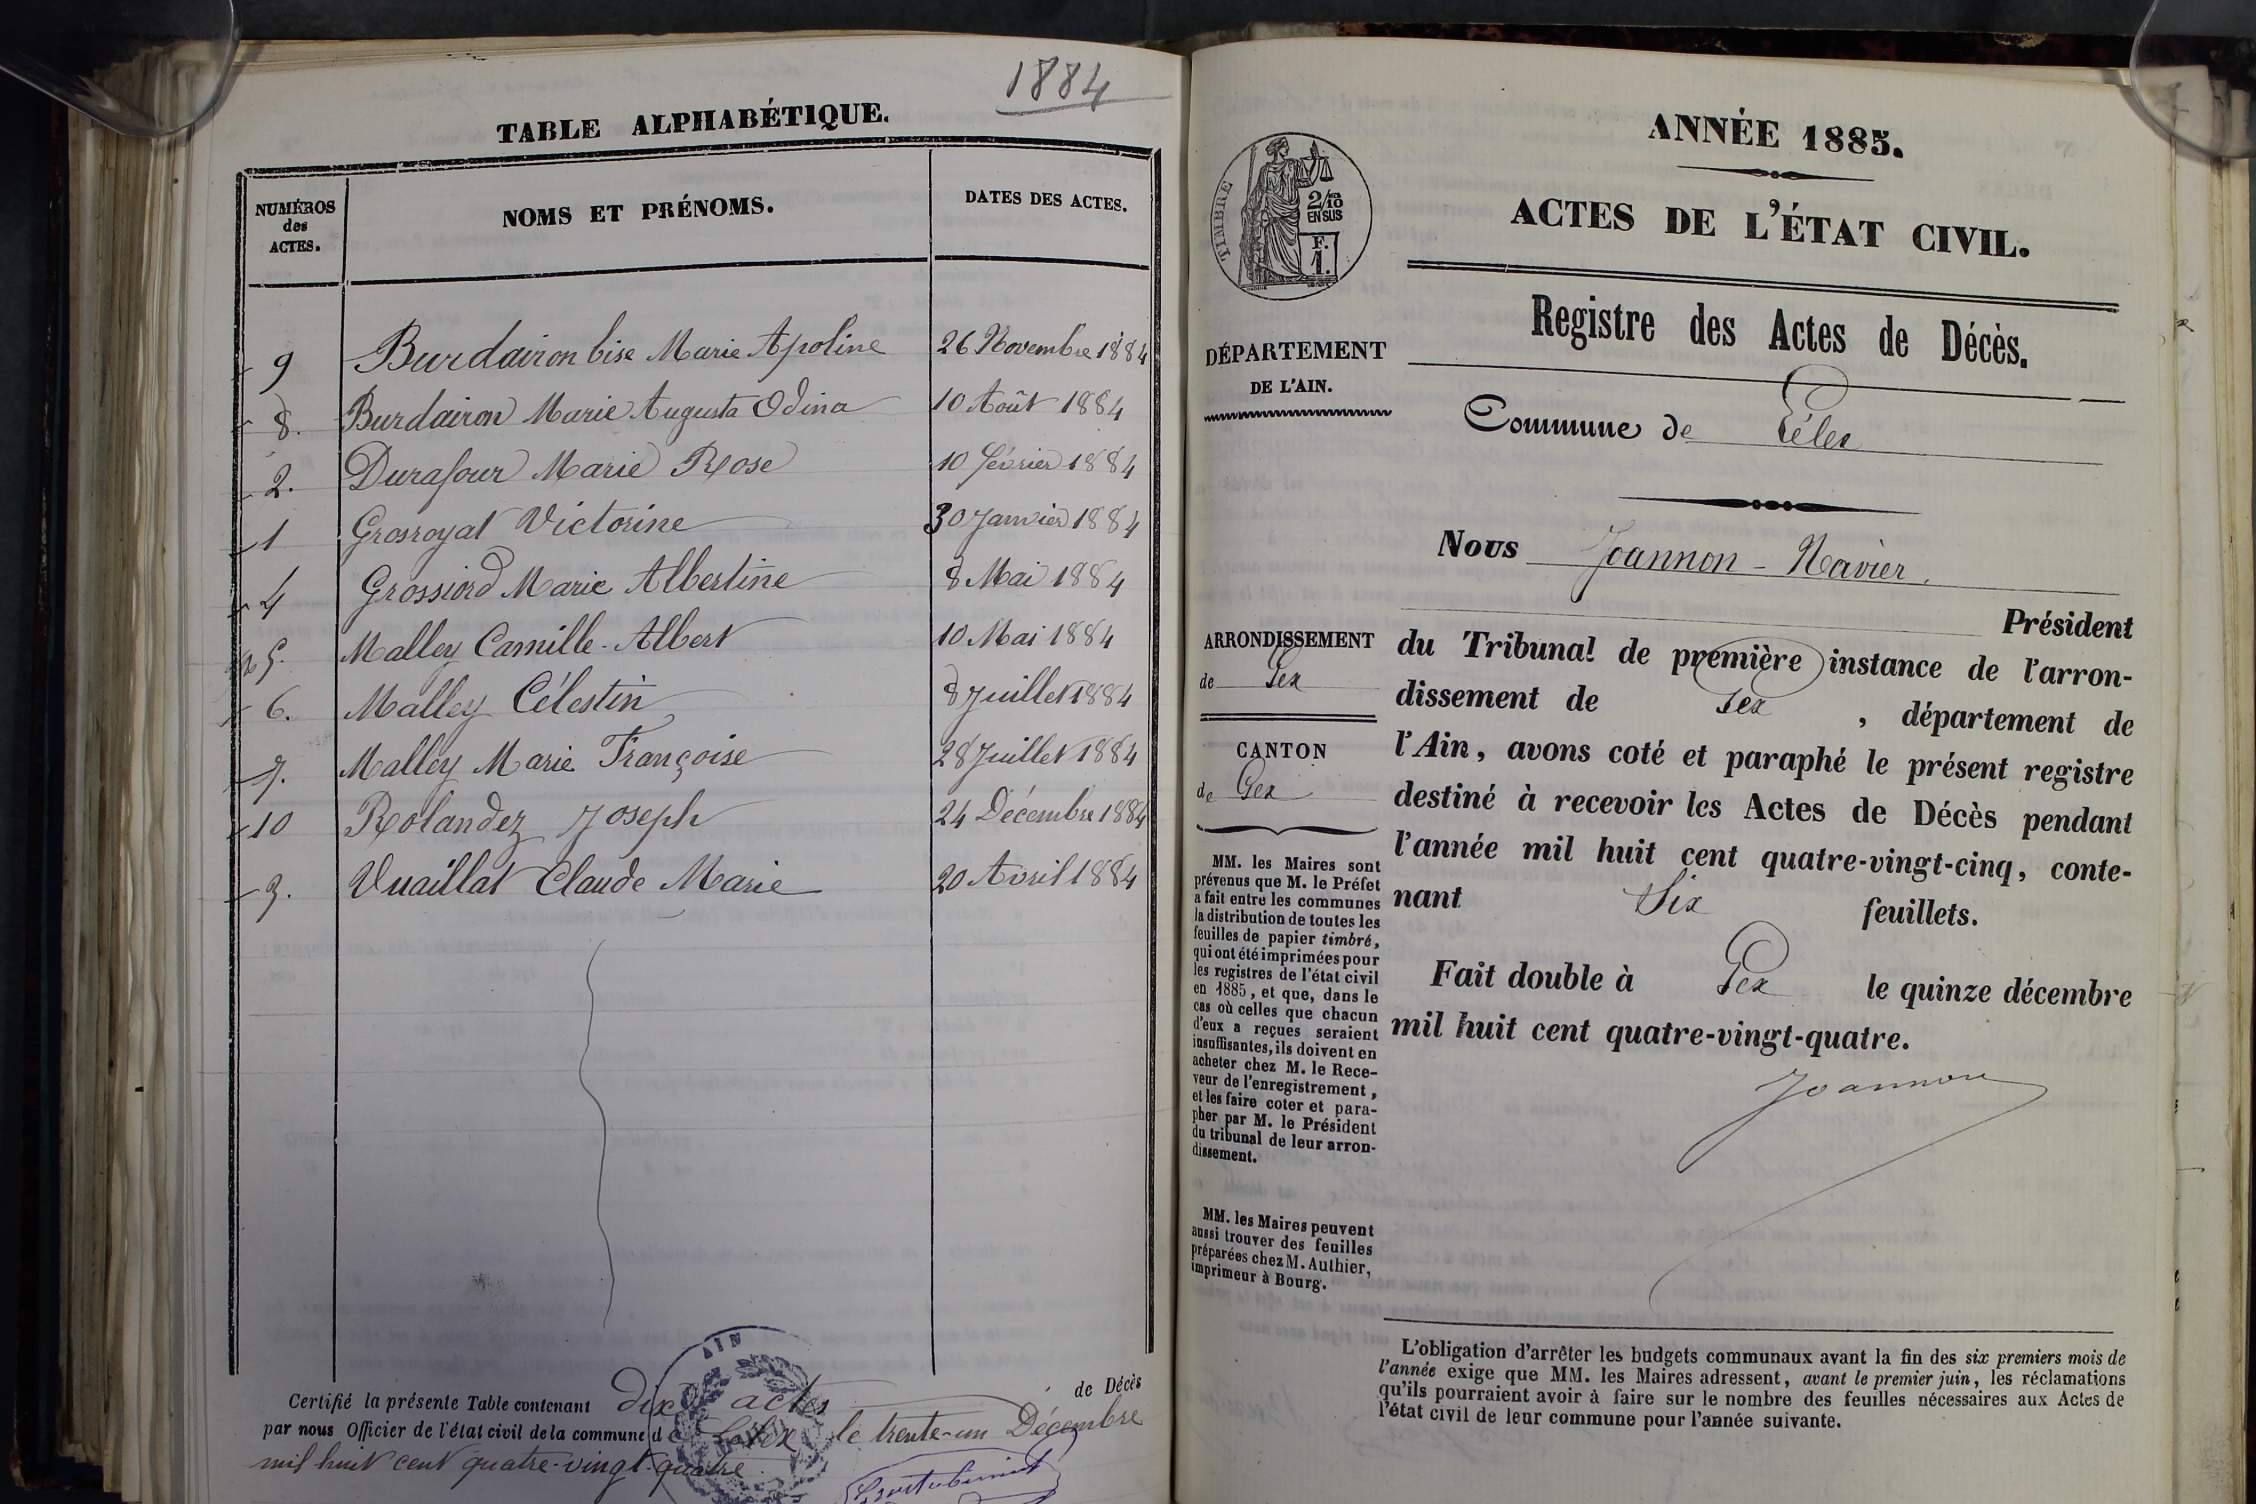 1884
TABLE ALPHABÉTIQUE.
NUMÉROS des ACTES.
NOMS ET PRÉNOMS.
DATES DES ACTES.
9 Burdairon bise Marie Apoline 26 Novembre 1884
8. Burdairon Marie Augusta Odina 10 Août 1884
2. Durafour Marie Rose 10 février 1884
1 Grosroyat Victorine 30 Janvier 1884
4 Grossiord Marie Albertine 8 Mai 1884
5. Malley Camille-Albert 10 Mai 1884
6. Malley Célestin 8 Juillet 1884
7. Malley Marie Françoise 28 Juillet 1884
10 Rolandez Joseph 24 Décembre 1884
3. Vuaillat Claude Marie 20 Avril 1884
Certifié la présente Table contenant dix actes de Décès
par nous Officier de l'état civil de la commune de Lélex le trente-un Décembre
mil huit cent quatre-vingt-quatre.
AIN
ANNÉE 1885.
ACTES DE L'ÉTAT CIVIL.
TIMBRE
2/10
EN SUS
F.
1.
Registre des Actes de Décès.
DÉPARTEMENT
DE L'AIN.
Commune de Lélex
Nous Joannon-Navier,
Président
ARRONDISSEMENT
de Gex
CANTON
de Gex
du Tribunal de première instance de l'arron-
dissement de Gex, département de
l'Ain, avons coté et paraphé le présent registre
destiné à recevoir les Actes de Décès pendant
l'année mil huit cent quatre-vingt-cinq, conte-
nant Six feuillets.
Fait double à Gex le quinze décembre
mil huit cent quatre-vingt-quatre.
Joannon
MM. les Maires sont
prévenus que M. le Préfet
a fait entre les communes
la distribution de toutes les
feuilles de papier timbré,
qui ont été imprimées pour
les registres de l'état civil
en 1885, et que, dans le
cas où celles que chacun
d'eux a reçues seraient
insuffisantes, ils doivent en
acheter chez M. le Rece-
veur de l'enregistrement,
et les faire coter et para-
pher par M. le Président
du tribunal de leur arron-
dissement.
MM. les Maires peuvent
aussi trouver des feuilles
préparées chez M. Authier,
imprimeur à Bourg.
L'obligation d'arrêter les budgets communaux avant la fin des six premiers mois de
l'année exige que MM. les Maires adressent, avant le premier juin, les réclamations
qu'ils pourraient avoir à faire sur le nombre des feuilles nécessaires aux Actes de
l'état civil de leur commune pour l'année suivante.